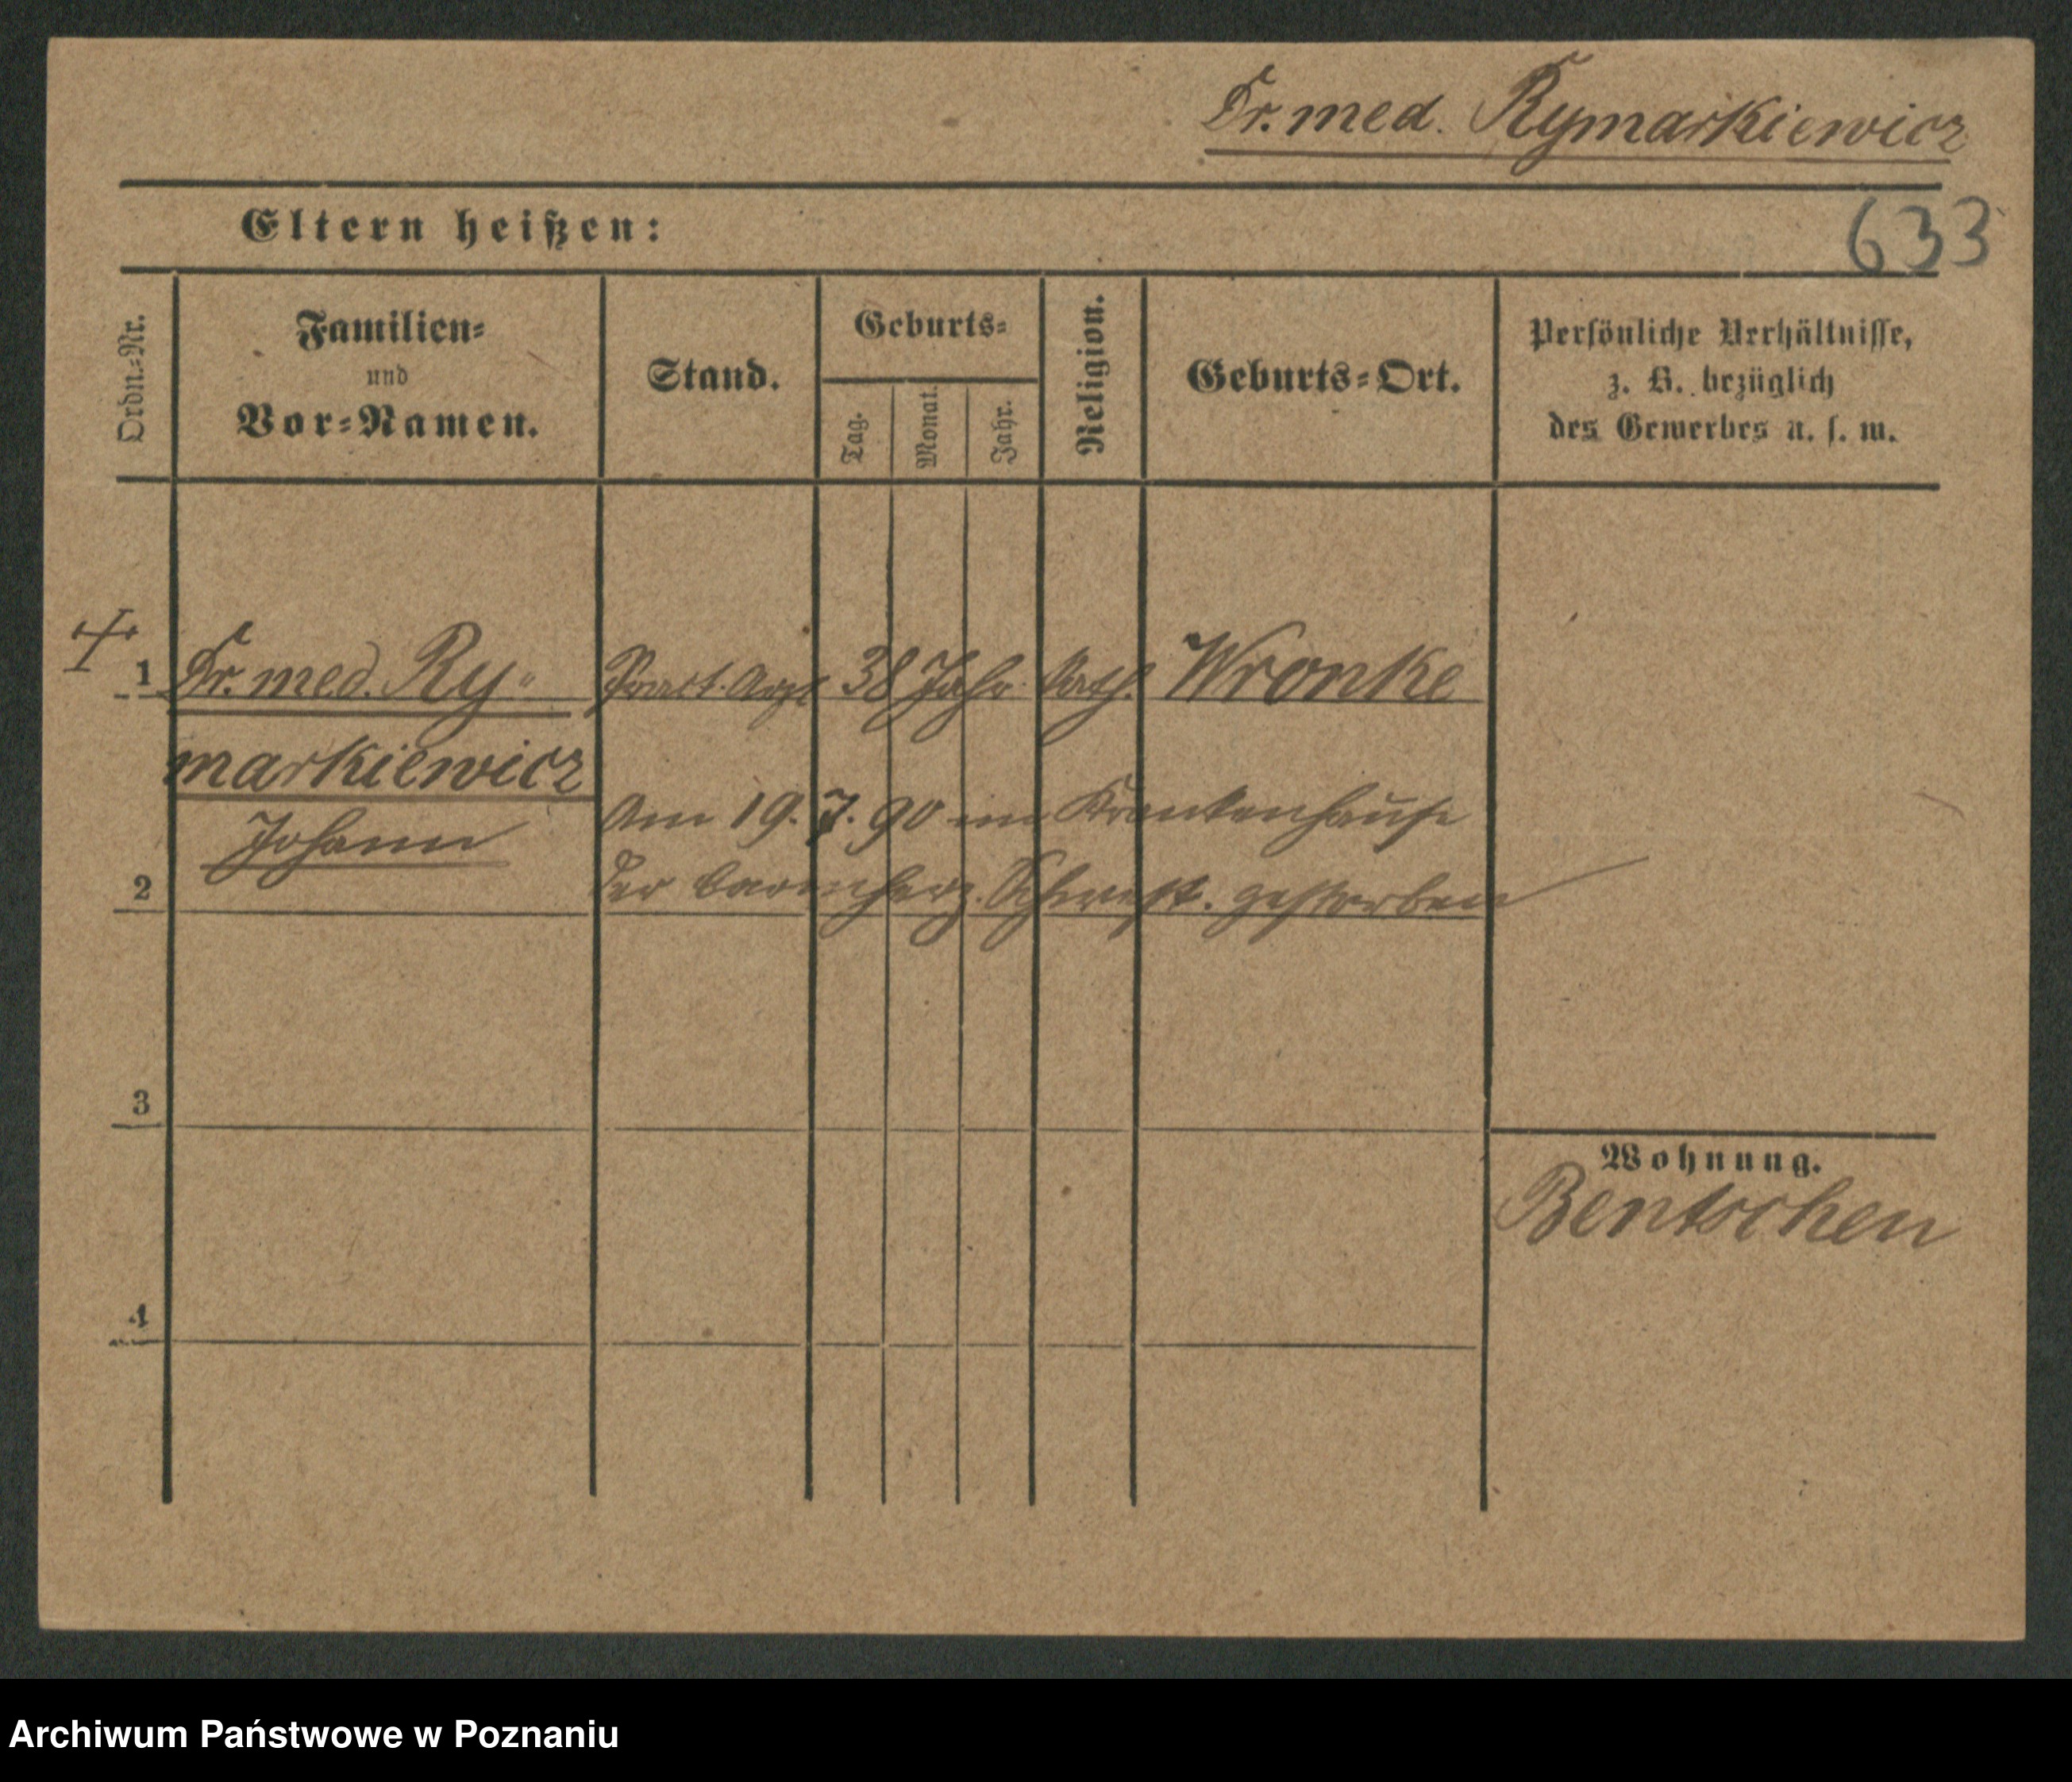 Dr. med. Rymarkiewicz
Eltern heißen:
633
Ordn.-Nr.
Familien-
und
Vor-Namen.
Stand.
Geburts-
Tag.
Monat.
Jahr.
Religion.
Geburts-Ort.
Persönliche Verhältnisse,
z. B. bezüglich
des Gewerbes u. s. w.
1 Dr. med. Ry- Pract. Arzt 38 Jahr kath. Wronke
markiewicz
Johann
Am 19. 7. 90 im Krankenhause
2 der barmherz. Schwest. gestorben
3
Wohnung.
Bentschen
4
Archiwum Państwowe w Poznaniu